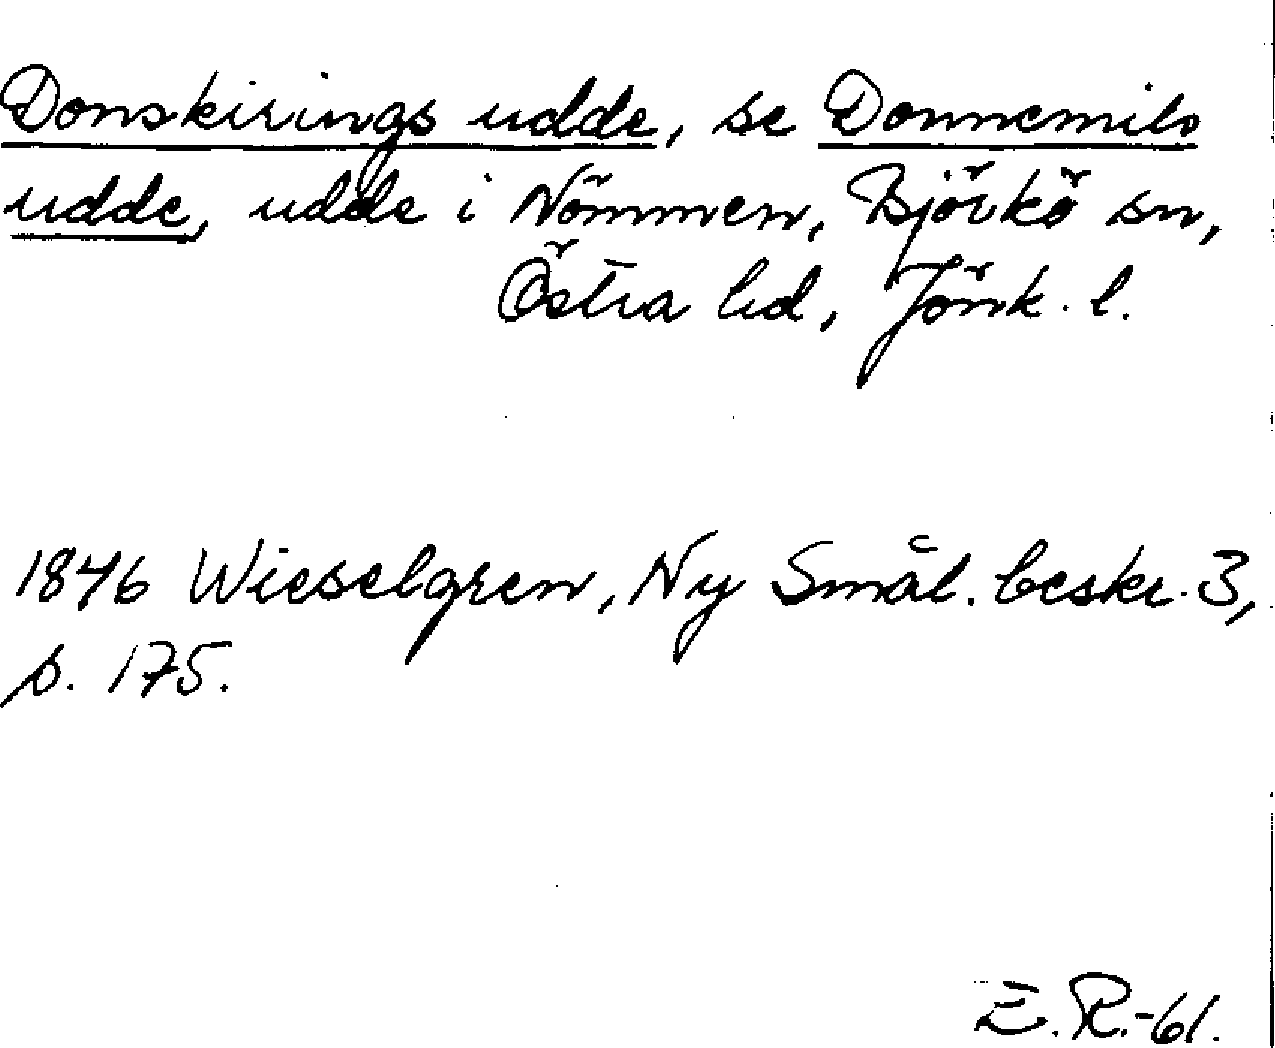 Donskirings udde, se Donnemils
udde, udde i Nömmen, Björkö sn,
Östra hd, Jönk. l.
1846 Wieselgren, Ny Smål. beskr. 3,
s. 175.
E. R.-61.